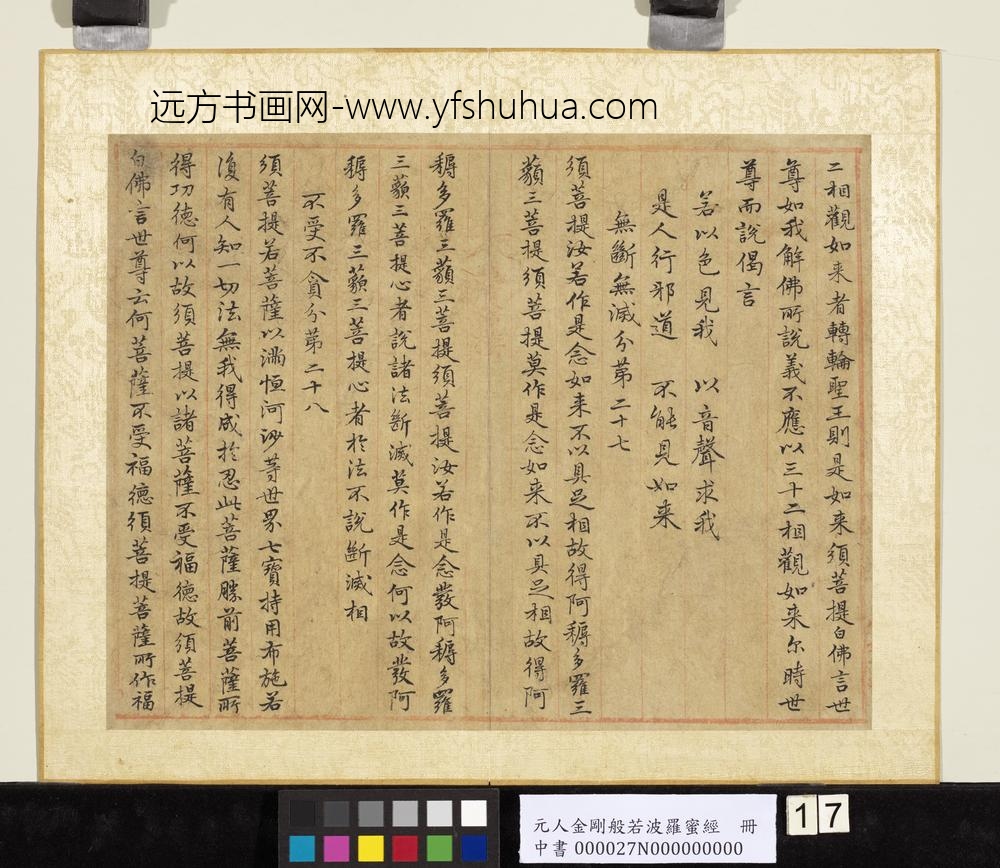 远方书画网-www.yfshuhua.com
二相觀如来者轉輪聖王則是如来須菩提白佛言世
尊如我解佛所說義不應以三十二相觀如来尔時世
尊而說偈言
若以色見我 以音聲求我
是人行邪道 不能見如来
無斷無滅分第二十七
須菩提汝若作是念如来不以具足相故得阿耨多羅三
藐三菩提須菩提莫作是念如来不以具足相故得阿
耨多羅三藐三菩提須菩提汝若作是念發阿耨多羅
三藐三菩提心者說諸法斷滅莫作是念何以故發阿
耨多羅三藐三菩提心者於法不說斷滅相
不受不貪分第二十八
須菩提若菩薩以滿恒河沙等世界七寶持用布施若
復有人知一切法無我得成於忍此菩薩勝前菩薩所
得功德何以故須菩提以諸菩薩不受福德故須菩提
白佛言世尊云何菩薩不受福德須菩提菩薩所作福
元人金剛般若波羅蜜經 冊
中書 000027N000000000
17